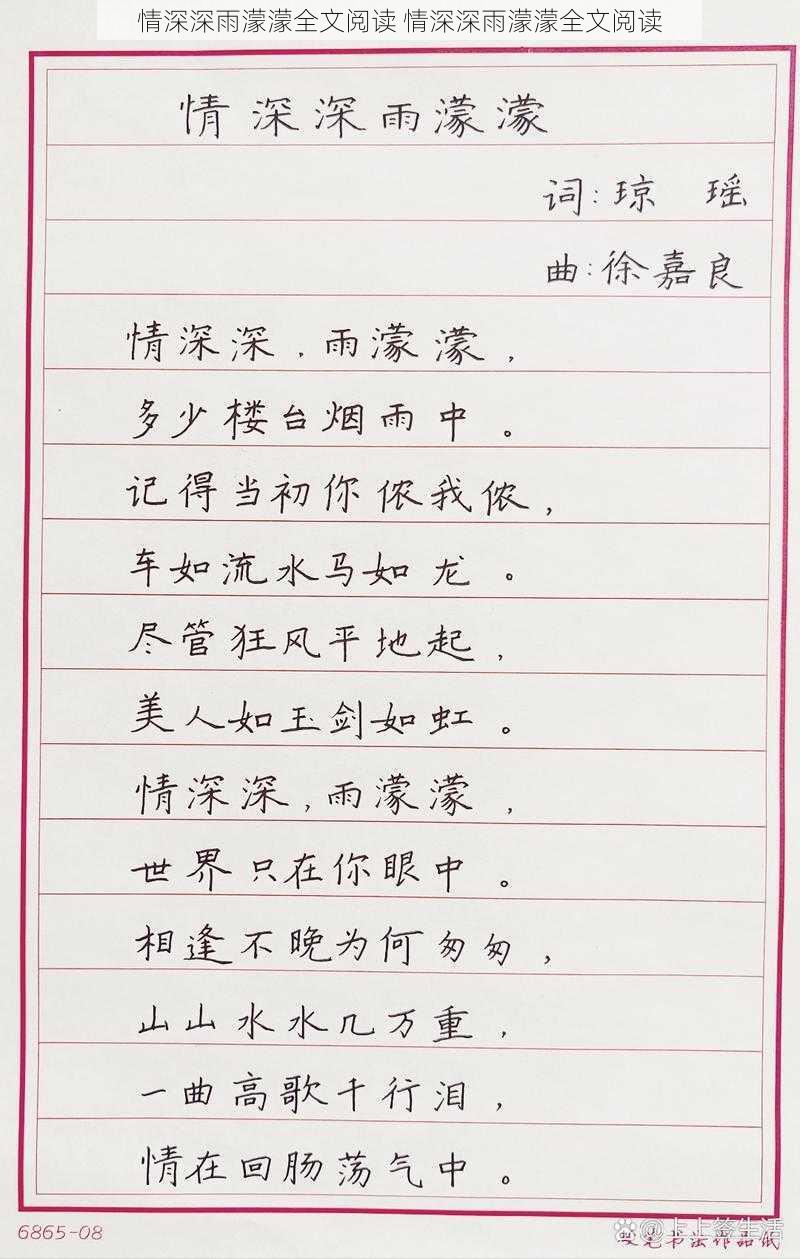 情深深雨濛濛全文阅读 情深深雨濛濛全文阅读
情深深雨濛濛
词:琼 瑶
曲:徐嘉良
情深深,雨濛濛,
多少楼台烟雨中。
记得当初你侬我侬,
车如流水马如龙。
尽管狂风平地起,
美人如玉剑如虹。
情深深,雨濛濛,
世界只在你眼中。
相逢不晚为何匆匆,
山山水水几万重,
一曲高歌千行泪,
情在回肠荡气中。
6865-08
@上上签生活
笔书法作品纸